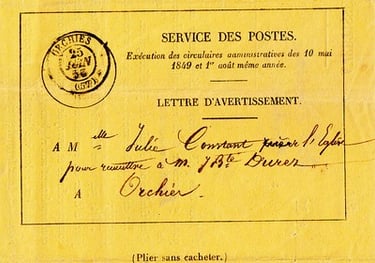 ORCHIES
25
JUIN
(57)
SERVICE DES POSTES.
Exécution des circulaires administratives des 10 mai
1849 et 1er août même année.
LETTRE D'AVERTISSEMENT.
A M elle Julie Constant l'Eglise
pour remettre à m. JBte Durez
A Orchies
(Plier sans cacheter.)